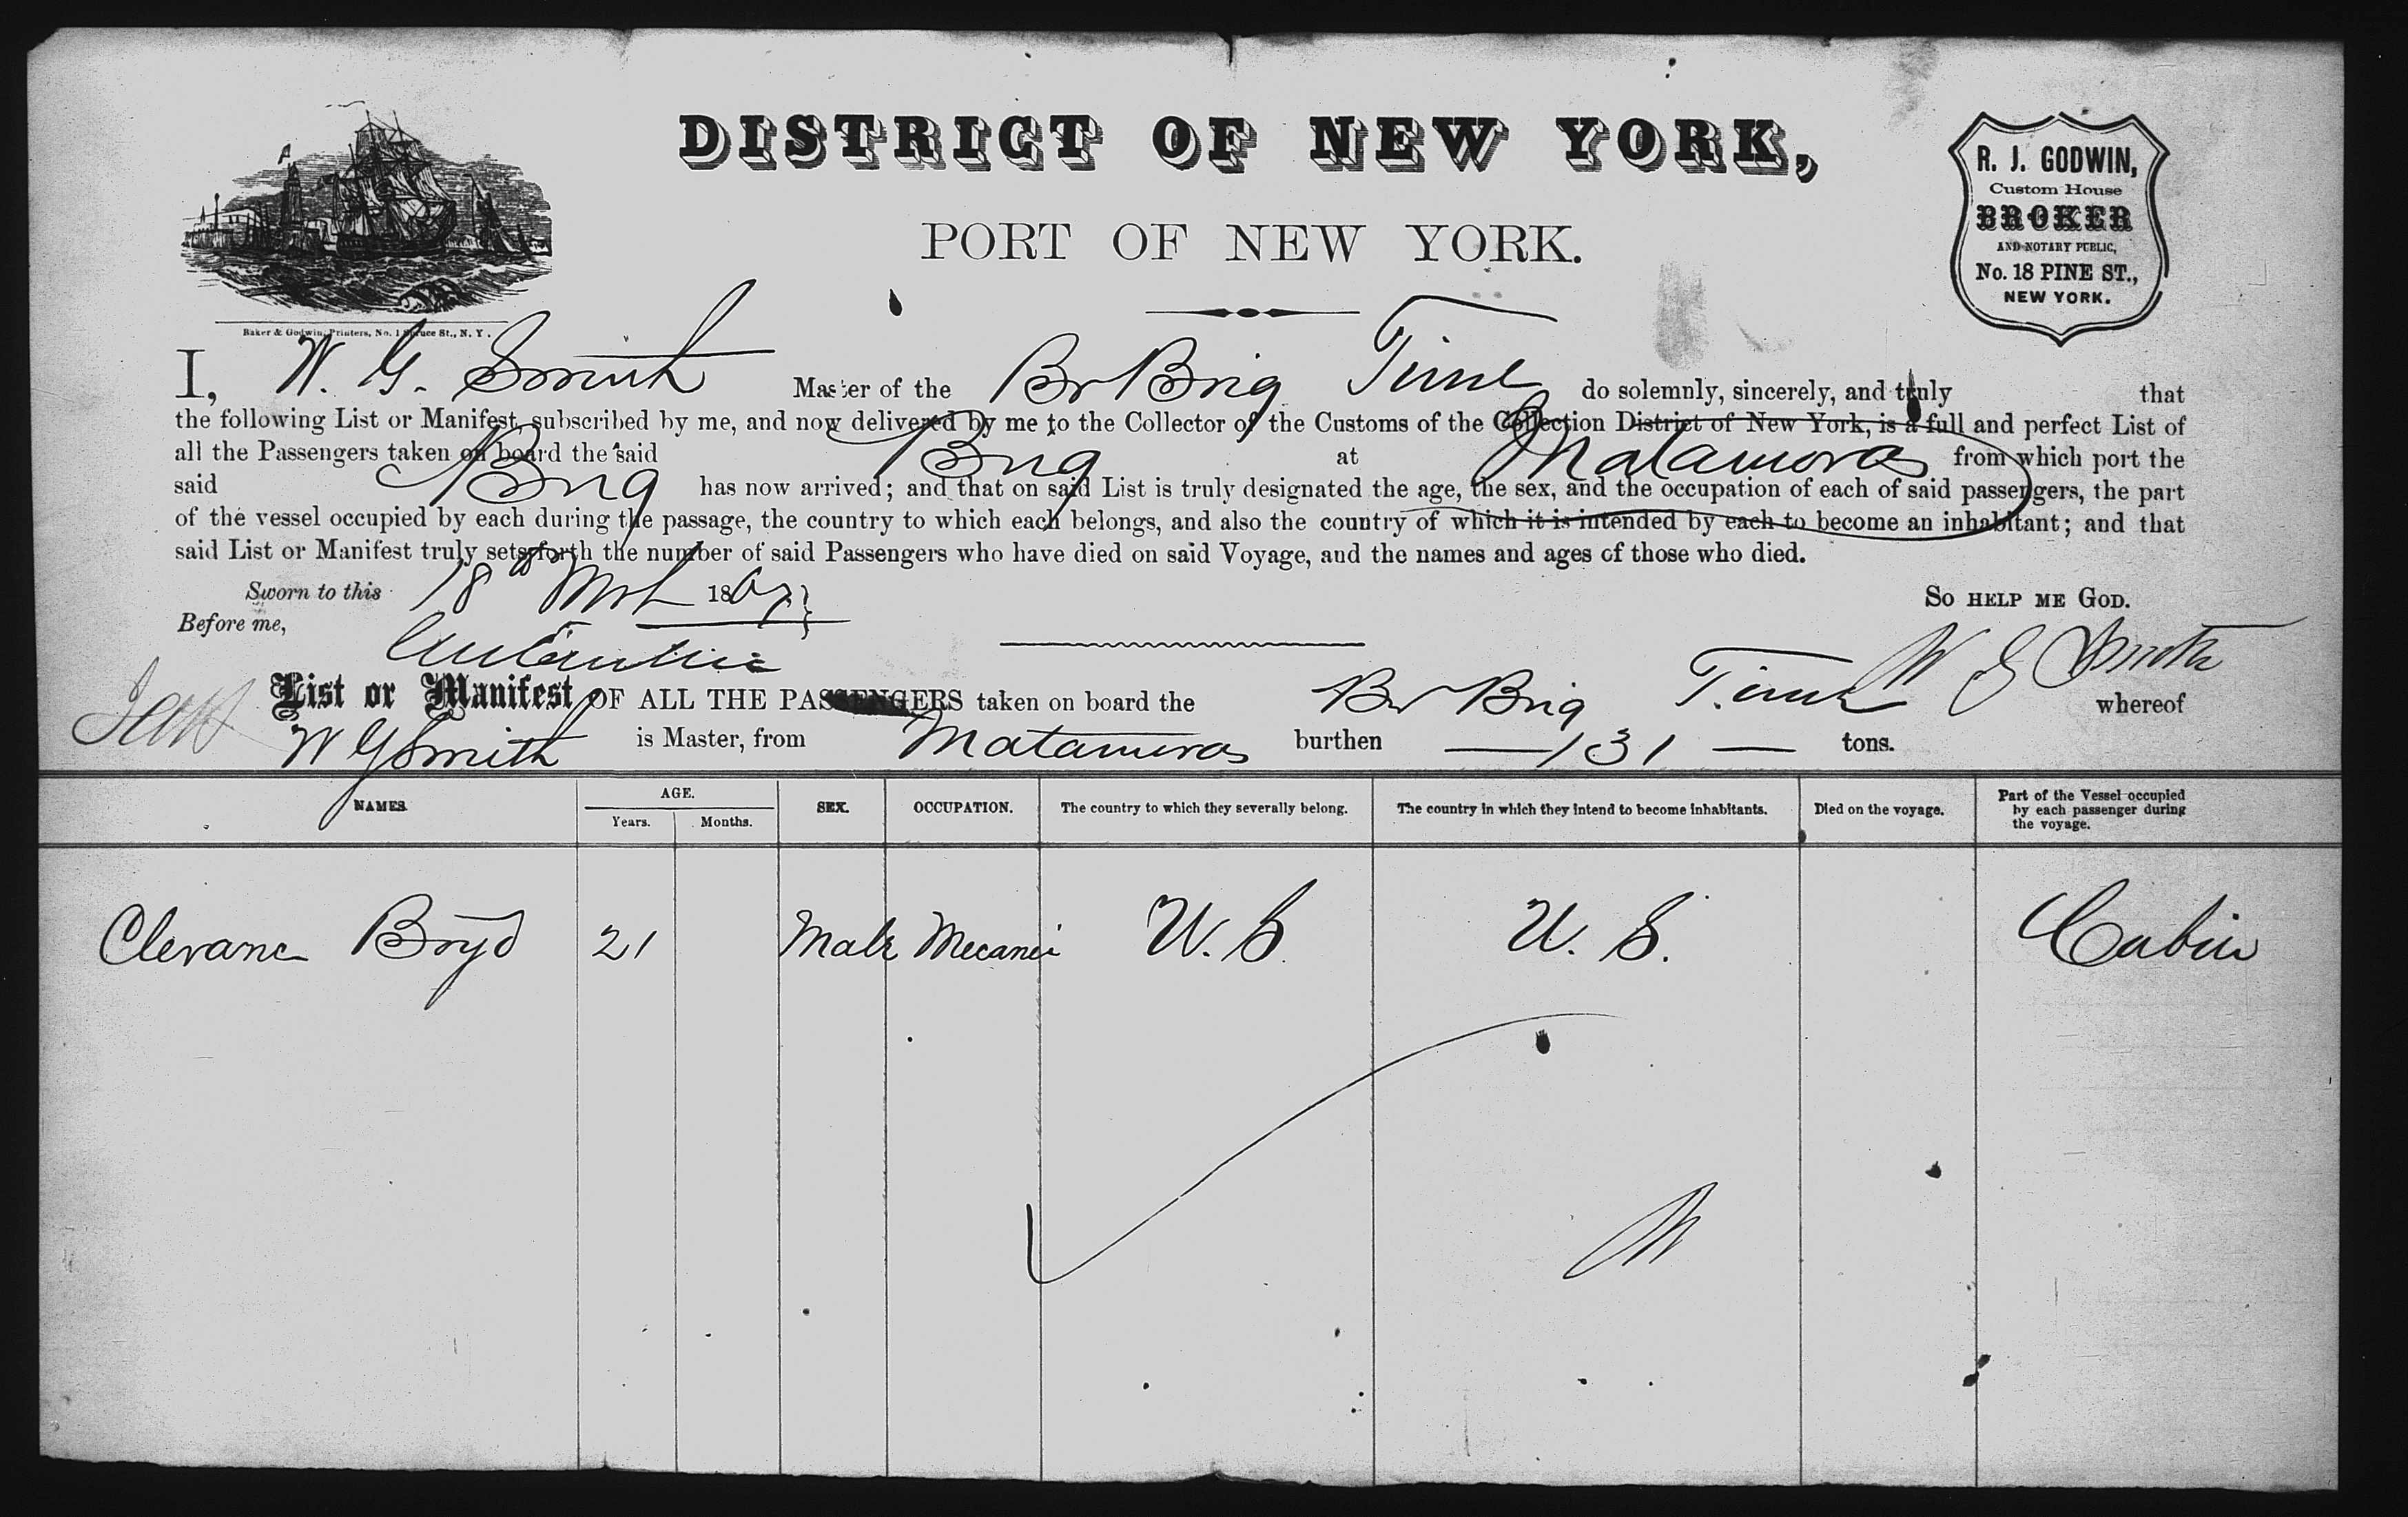 DISTRICT OF NEW YORK,
PORT OF NEW YORK.
R. J. GODWIN,
Custom House
BROKER
AND NOTARY PUBLIC,
No. 18 PINE ST.,
NEW YORK.
Baker & Godwin, Printers, No. 1 Spruce St., N. Y.
I, W. G. Smith Master of the Br Brig Time do solemnly, sincerely, and truly that
the following List or Manifest, subscribed by me, and now delivered by me to the Collector of the Customs of the Collection District of New York, is a full and perfect List of
all the Passengers taken on board the said Brig at Matamoras from which port the
said Brig has now arrived; and that on said List is truly designated the age, the sex, and the occupation of each of said passengers, the part
of the vessel occupied by each during the passage, the country to which each belongs, and also the country of which it is intended by each to become an inhabitant; and that
said List or Manifest truly sets forth the number of said Passengers who have died on said Voyage, and the names and ages of those who died.
Sworn to this 18 1867 } So HELP ME GOD.
Before me,
W G Smith
List or Manifest OF ALL THE PASSENGERS taken on board the Br Brig Time whereof
W G Smith is Master, from Matamoras burthen 131 tons.
NAMES. AGE. Years. Months. SEX. OCCUPATION. The country to which they severally belong. The country in which they intend to become inhabitants. Died on the voyage. Part of the Vessel occupied by each passenger during the voyage.
Boyd 21 Male U. S. U. S. Cabin